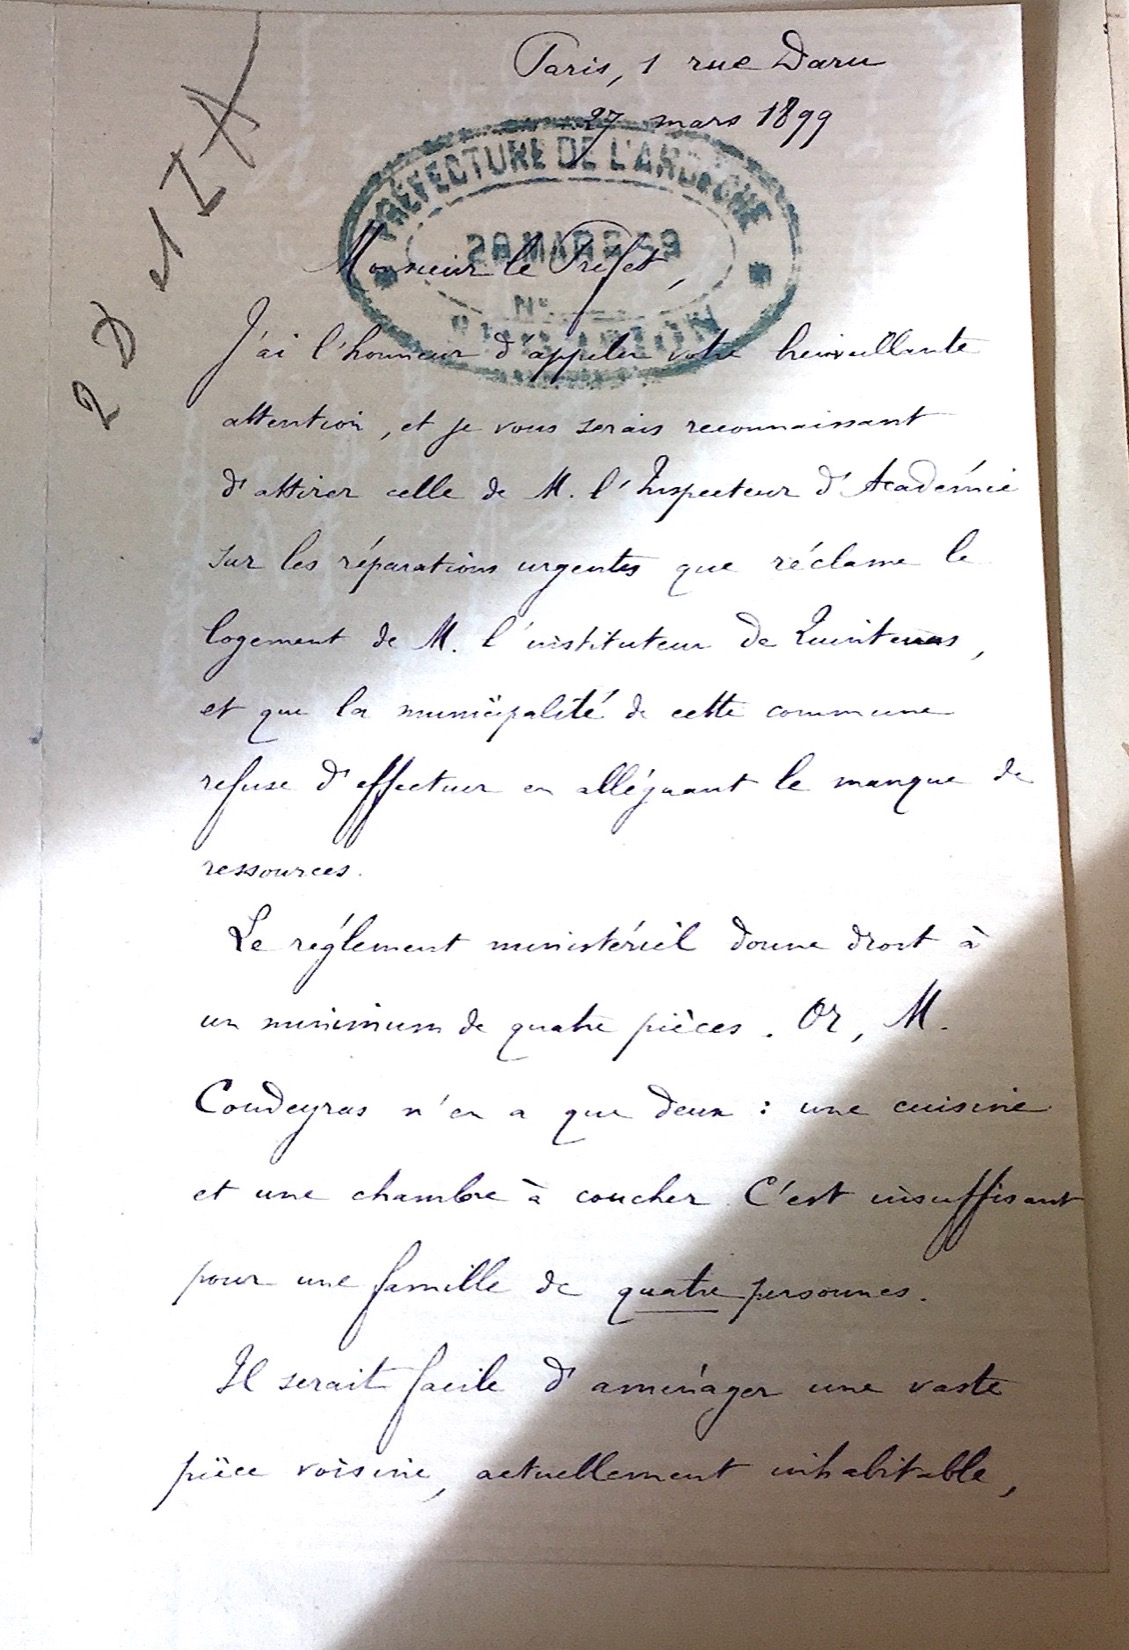 Paris, 1 rue Daru
27 mars 1899
PRÉFECTURE DE L'ARDÈCHE
28 MARS 99
N°
Monsieur le Préfet,
J'ai l'honneur d'appeler votre bienveillante
attention, et je vous serais reconnaissant
d'attirer celle de M. l'Inspecteur d'Académie
sur les réparations urgentes que réclame le
logement de M. l'instituteur de Quintenas,
et que la municipalité de cette commune
refuse d'effectuer en alléguant le manque de
ressources.
Le réglement ministériel donne droit à
un minimum de quatre pièces. Or, M.
Coudeyras n'en a que deux : une cuisine
et une chambre à coucher. C'est insuffisant
pour une famille de quatre personnes.
Il serait facile d'aménager une vaste
pièce voisine, actuellement inhabitable,